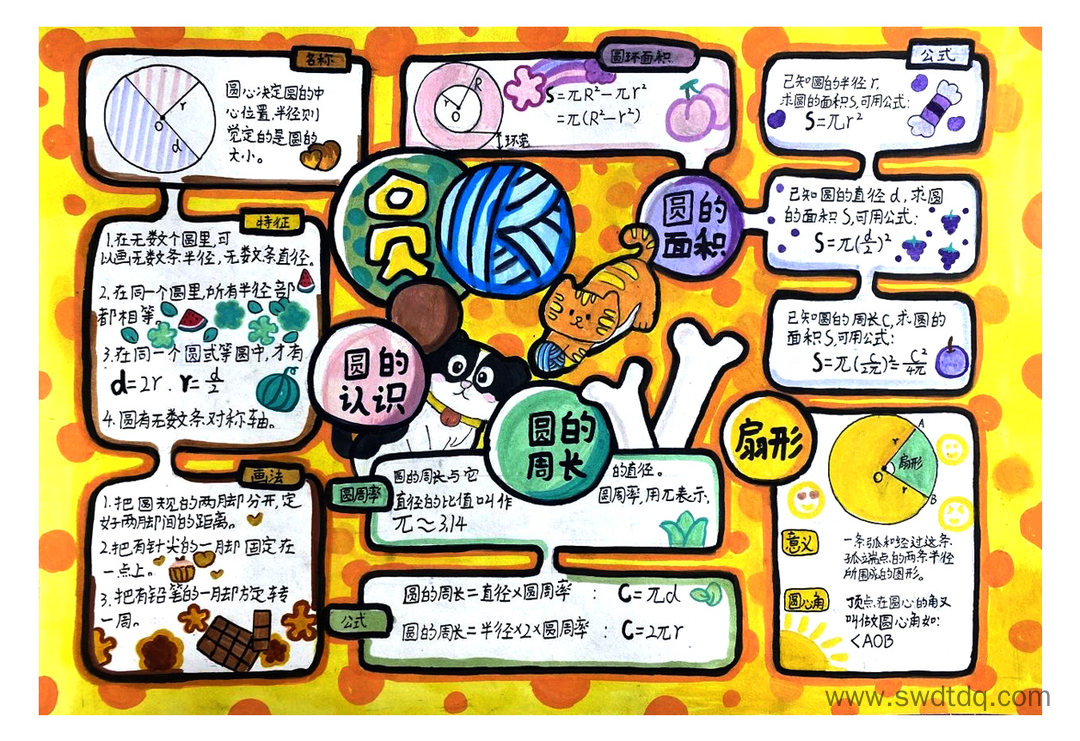 圆
圆的
认识
名称
圆心决定圆的中
心位置,半径则
觉定的是圆的
大小。
r
O
d
特征
1.在无数个圆里,可
以画无数条半径,无数条直径。
2.在同一个圆里,所有半径部
都相等
3.在同一个圆式等圆中,才有
d=2r . r=d/2
4.圆有无数条对称轴。
画法
1.把圆规的两月却分开,定
好两月却间的距离。
2.把有针尖的一月却固定在
一点上。
3.把有铅笔的一月却方定转
一周。
圆环面积
R
r
O
S=πR²-πr²
=π(R²-r²)
环宽
圆的
面积
公式
已知圆的半径r.
求圆的面积S,可用公式:
S=πr²
已知圆的直径d,求圆
的面积S,可用公式:
S=π(d/2)²
已知圆的周长C,求圆的
面积S,可用公式:
S=π(C/2π)²=C²/4π
圆的
周长
圆周率
圆的周长与它的直径。
直径的比值叫作圆周率,用π表示,
π≈3.14
公式
圆的周长=直径×圆周率 : C=πd
圆的周长=半径×2×圆周率 : C=2πr
扇形
A
r
扇形
O
r
B
意义
一条弧和经过这条
弧端点的两条半径
所围成的图形。
圆心角
顶点在圆心的角又
叫做圆心角如:
<AOB
www.swdtdq.com